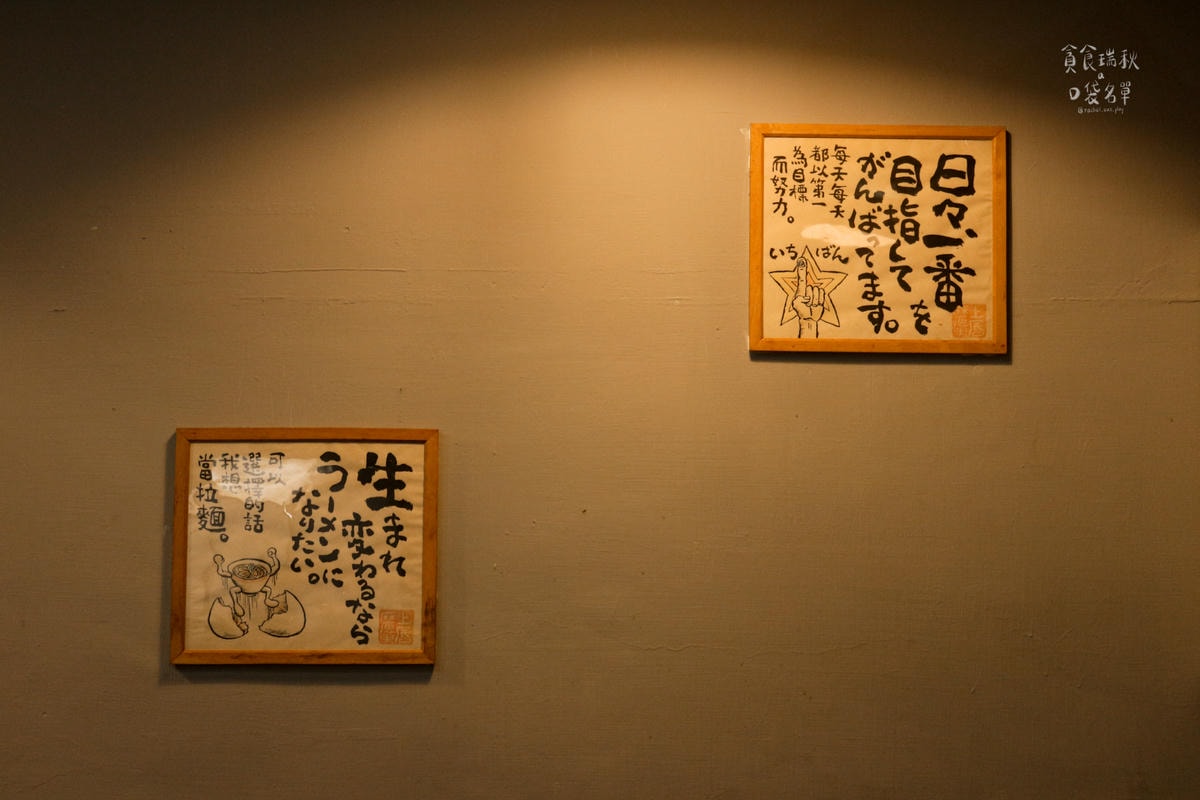 貪食瑞秋
a
口袋名單
日々、一番を
目指して
がんばってます。
每天每天
都以第一
為目標
而努力。
いちばん
生まれ
変わるなら
ラーメンに
なりたい。
可以
選擇的話
我想
當拉麵。